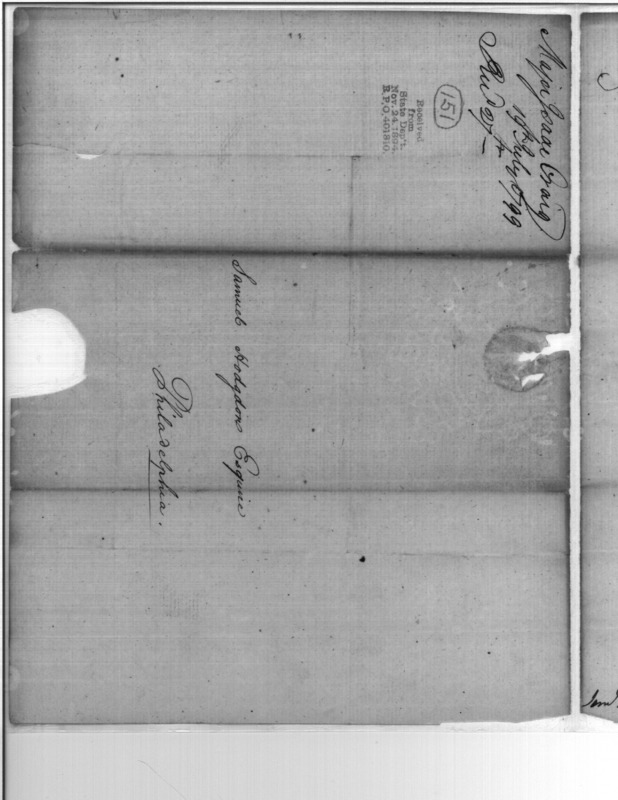 Major Isaac Craig
19th July 1799
151
Received
from
State Dep't.
Nov. 24 1894
R.P.O. 401810.
Samuel Hodgdon Esquire
Philadelphia.